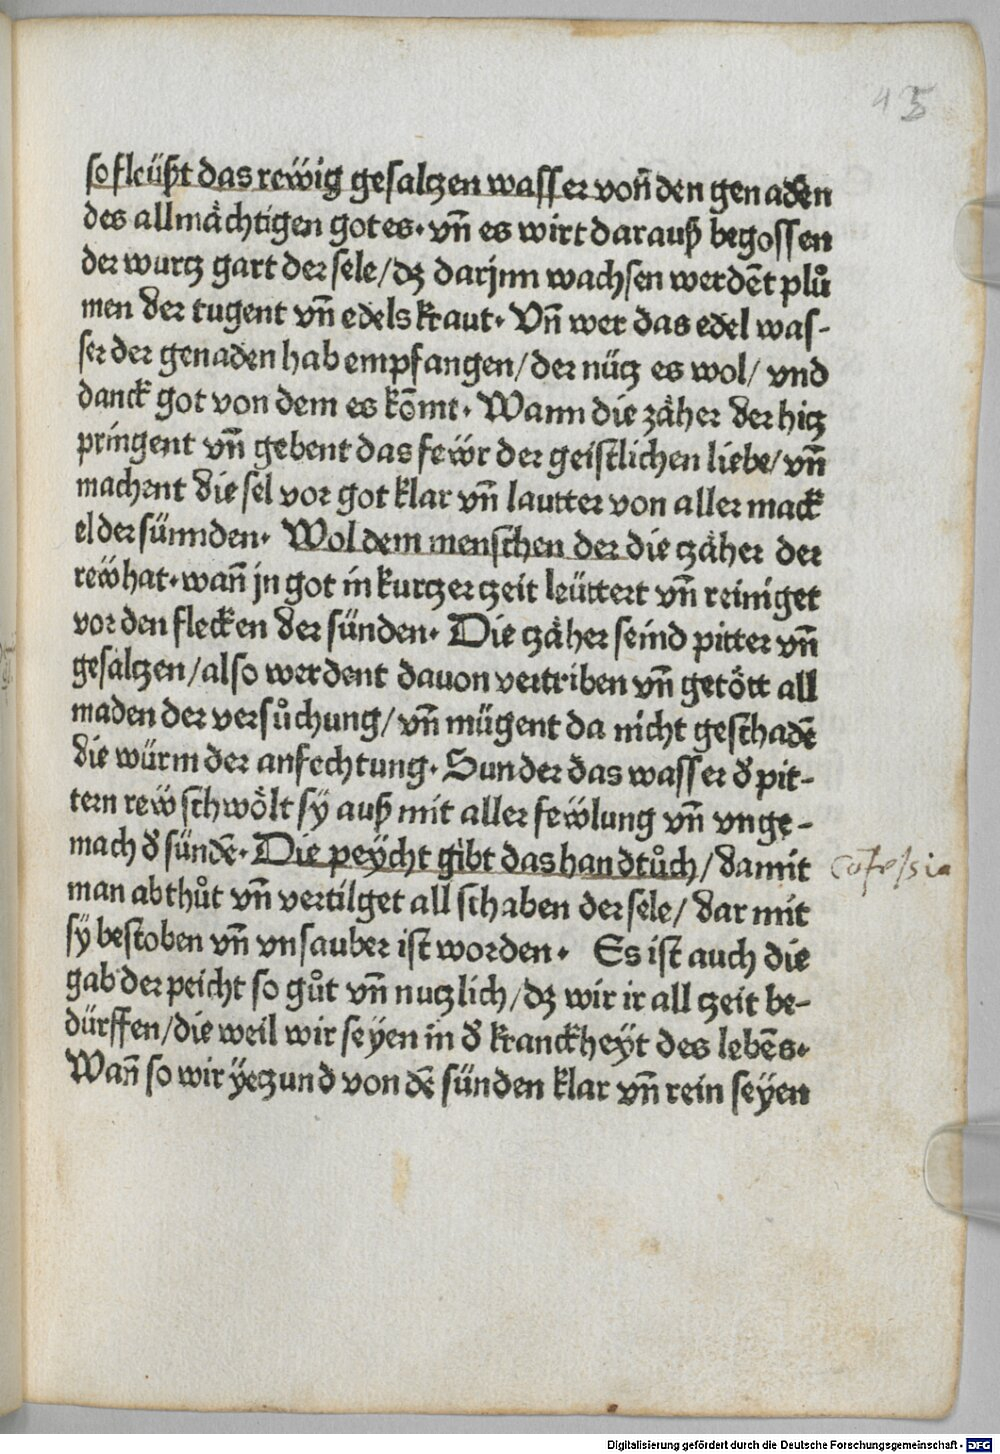 45
so fleüßt das rewig gesaltzen wasser voñ den genaden
des allmächtigen gotes. vñ es wirt darauß begossen
der wurtz gart der sele/dz darjnn wachsen werdēt plů
men der tugent vñ edels kraut. Vñ wer das edel was-
ser der genaden hab empfangen/der nütz es wol/ vnd
danck got von dem es kōmt. Wann die zäher der hitz
pringent vñ gebent das fewr der geistlichen liebe/ vñ
machent die sel vor got klar vñ lautter von aller mack
el der sünnden. Wol dem menschen der die tzäher der
rew hat. wañ jn got in kurtzer tzeit leüttert vñ reiniget
vor den flecken der sünden. Die tzäher seind pitter vñ
gesaltzen/also werdent dauon vertriben vñ getött all
maden der versůchung/ vñ mügent da nicht geschadē
die würm der anfechtung. Sunder das wasser đ pit-
tern rew schwölt sy auß mit aller fewlung vñ vnge-
mach đ sündē. Die peycht gibt das handtůch/ damit
cōfessio
man abthůt vñ vertilget all schaben der sele/ dar mit
sy bestoben vñ vnsauber ist worden. Es ist auch die
gab der peicht so gůt vñ nutzlich/dz wir ir all tzeit be-
dürffen/die weil wir seyen in đ kranckheyt des lebēs.
Wañ so wir yetzund von dē sünden klar vñ rein seyen
Digitalisierung gefördert durch die Deutsche Forschungsgemeinschaft - DFG